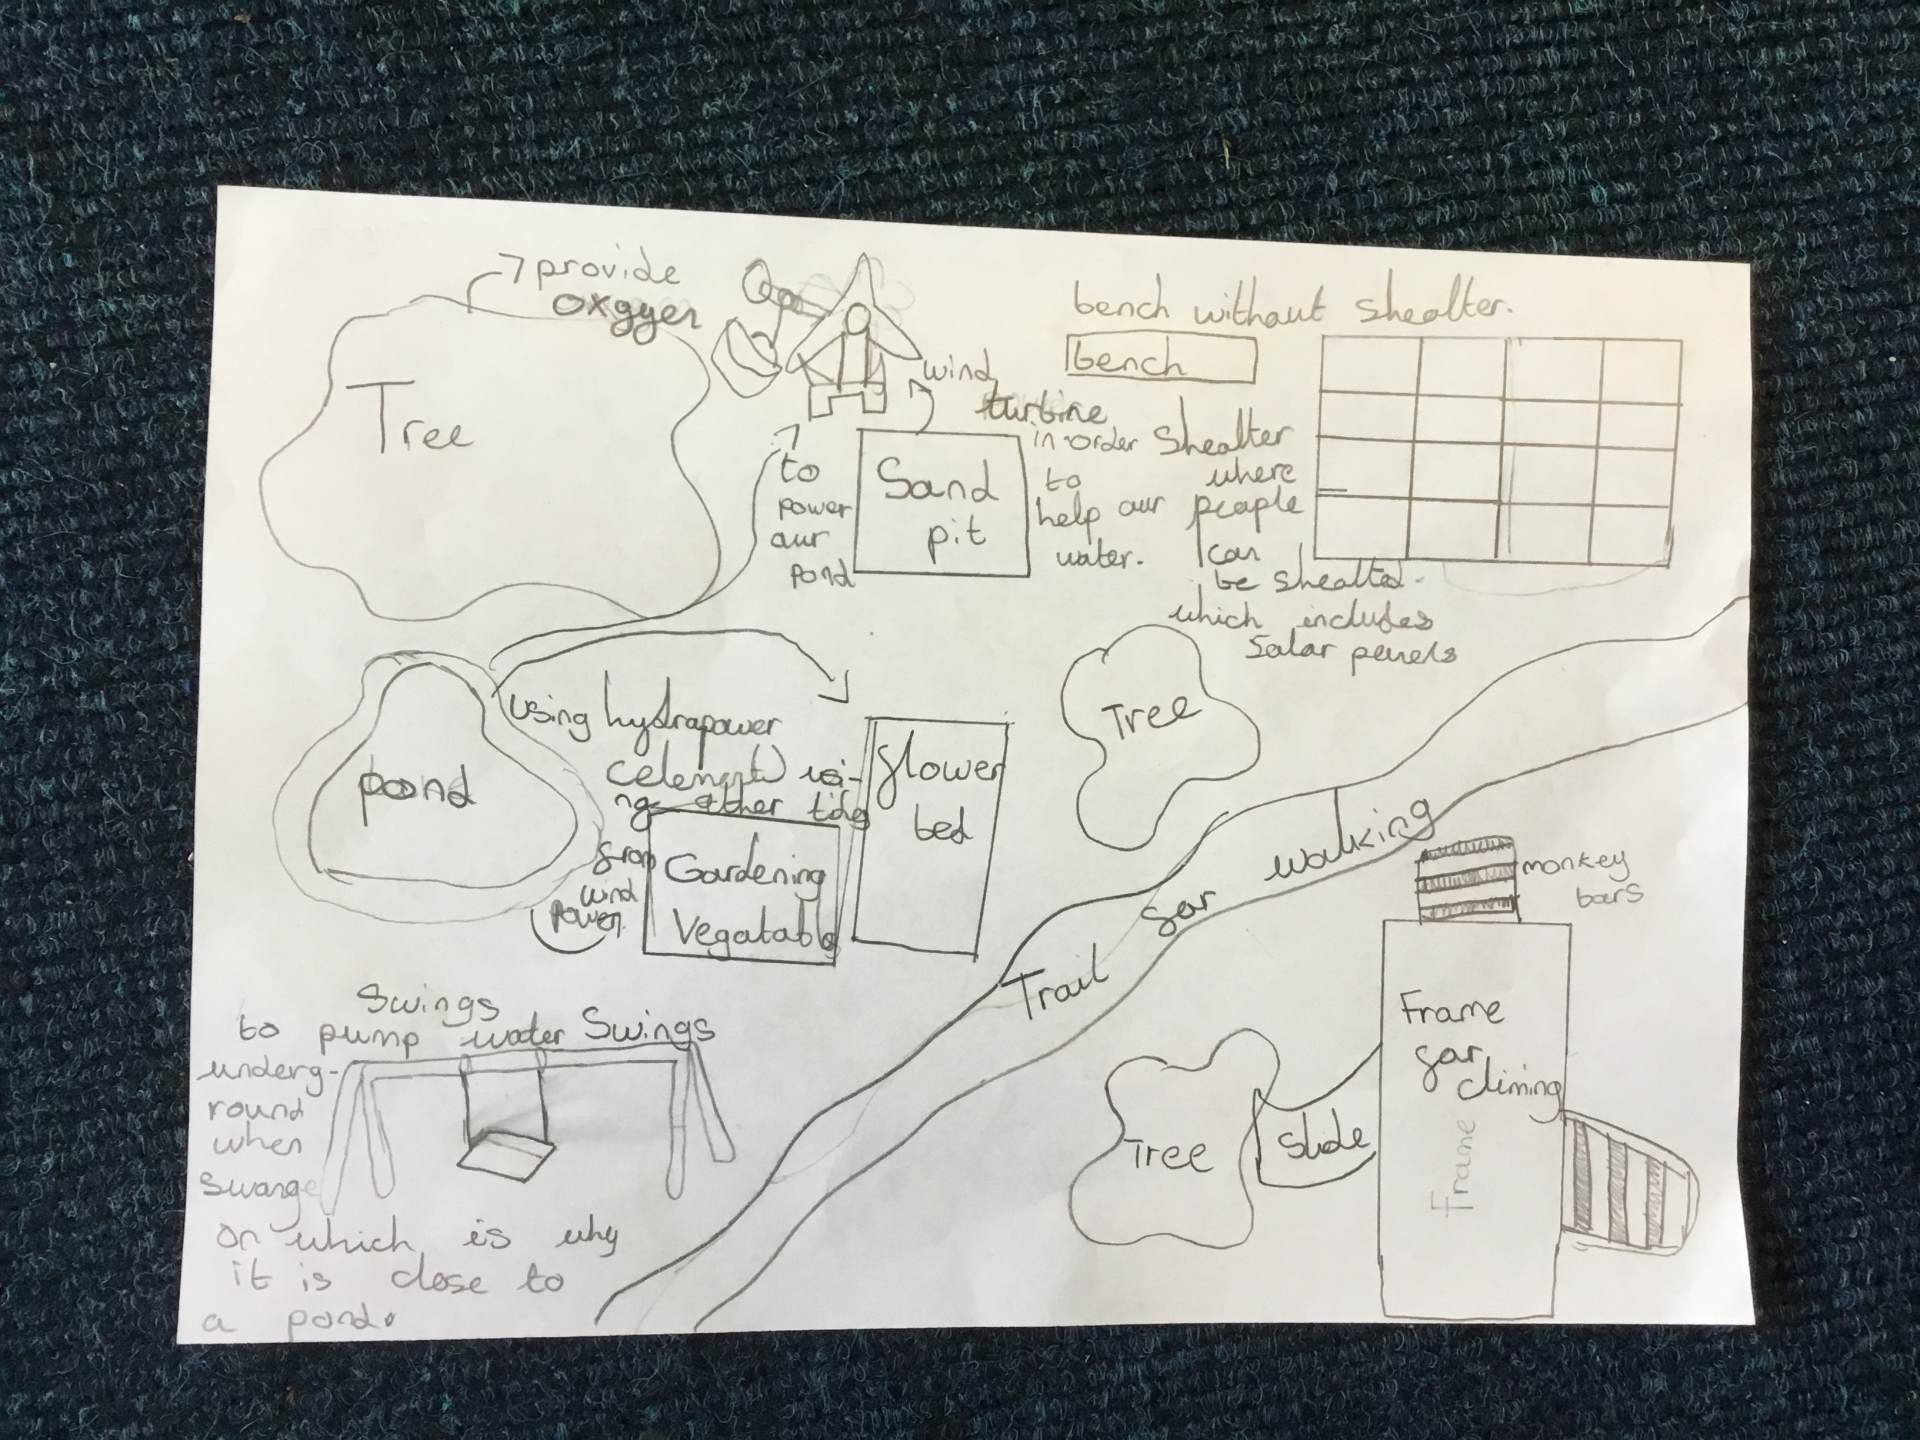 provide
oxgyen
Tree
wind
turbine
to
power
our
pond
Sand
pit
in order
to
help our
water.
bench without shealter.
bench
Shealter
where
people
can
be shealted.
which includes
Solar panels
pond
using hydrapower
usi-
ng other
from
wind
power.
Gardening
Vegatable
flower
bed
Tree
Trail for walking
monkey
bars
Frame
for
climing
Frame
Slide
Tree
Swings
to pump water Swings
underg-
round
when
Swange
on which is why
it is close to
a pond.